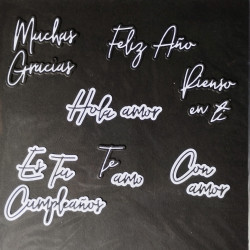 Muchas
Gracias
Feliz Año
Pienso
en ti
Hola amor
Es Tu
Cumpleaños
Te
amo
Con
amor